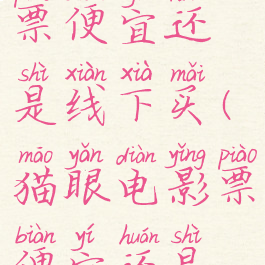 票便宜还
shì xiàn xià mǎi
是线下买(
māo yǎn diàn yǐng piào
猫眼电影票
biàn yí huán shì
便宜还是